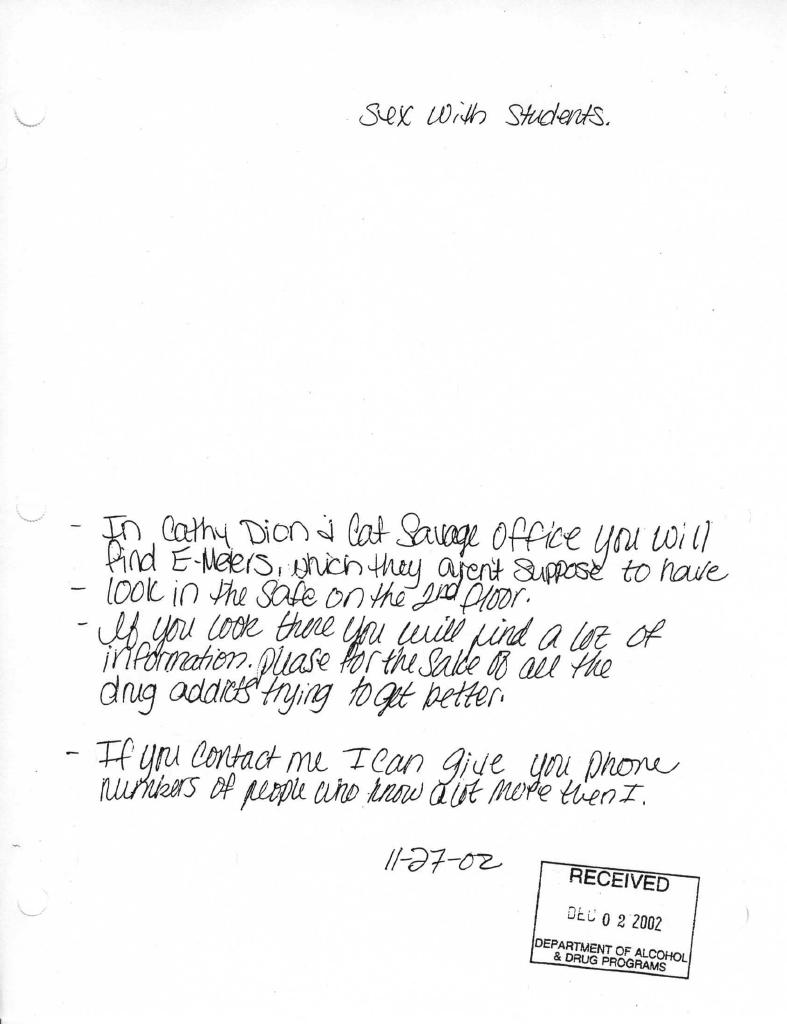 Sex with students.
- In Cathy Dion & Cat Savage office you will
find E-Meters, which they arent suppose to have
- look in the safe on the 2nd floor.
- If you look there you will find a lot of
information. please for the sake of all the
drug addicts trying to get better.
- If you contact me I can give you phone
numbers of people who know a lot more then I.
11-27-02
RECEIVED
DEC 02 2002
DEPARTMENT OF ALCOHOL
& DRUG PROGRAMS